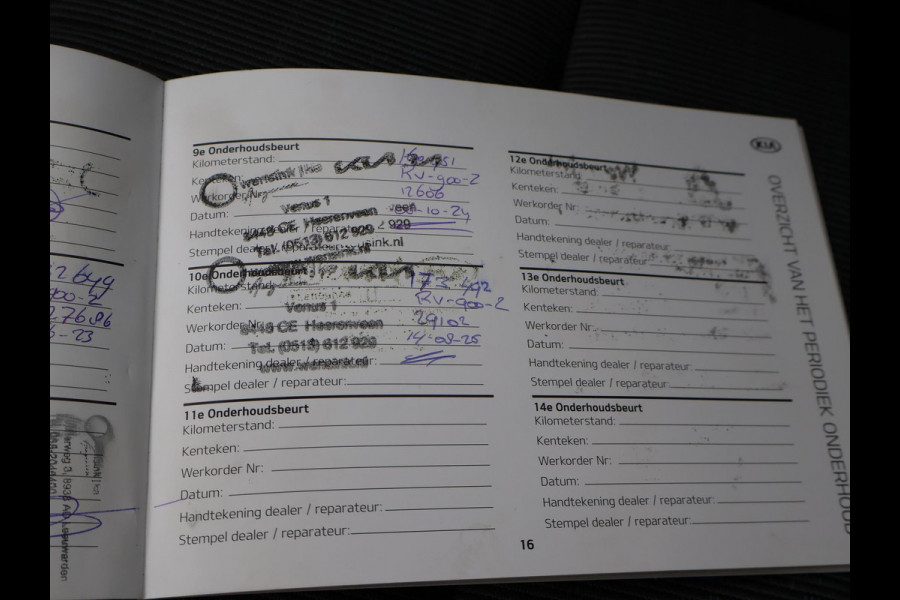 2649
00-2
27696
-23
9e Onderhoudsbeurt
Kilometerstand:
RV-900-2
Werkorder Nr:
12606
Datum: -10-24
Venus 1
8448 CE Heerenveen
Handtekening dealer / reparateur:
Tel. (0513) 612 929
Stempel dealer / reparateur:
10e Onderhoudsbeurt
Kilometerstand: 173.492
Kenteken: RV-900-2
Venus 1
Werkorder Nr: 29102
8448 CE Heerenveen
Datum: 14-08-25
Tel. (0513) 612 929
Handtekening dealer / reparateur:
Stempel dealer / reparateur:
11e Onderhoudsbeurt
Kilometerstand:
Kenteken:
Werkorder Nr:
Datum:
Handtekening dealer / reparateur:
Stempel dealer / reparateur:
12e Onderhoudsbeurt
Kilometerstand
Kenteken:
Werkorder Nr:
Datum:
Handtekening dealer / reparateur:
Stempel dealer / reparateur:
13e Onderhoudsbeurt
Kilometerstand:
Kenteken:
Werkorder Nr:
Datum:
Handtekening dealer / reparateur:
Stempel dealer / reparateur:
14e Onderhoudsbeurt
Kilometerstand:
Kenteken:
Werkorder Nr:
Datum:
Handtekening dealer / reparateur:
Stempel dealer / reparateur:
16
KIA
OVERZICHT VAN HET PERIODIEK ONDERHOUD